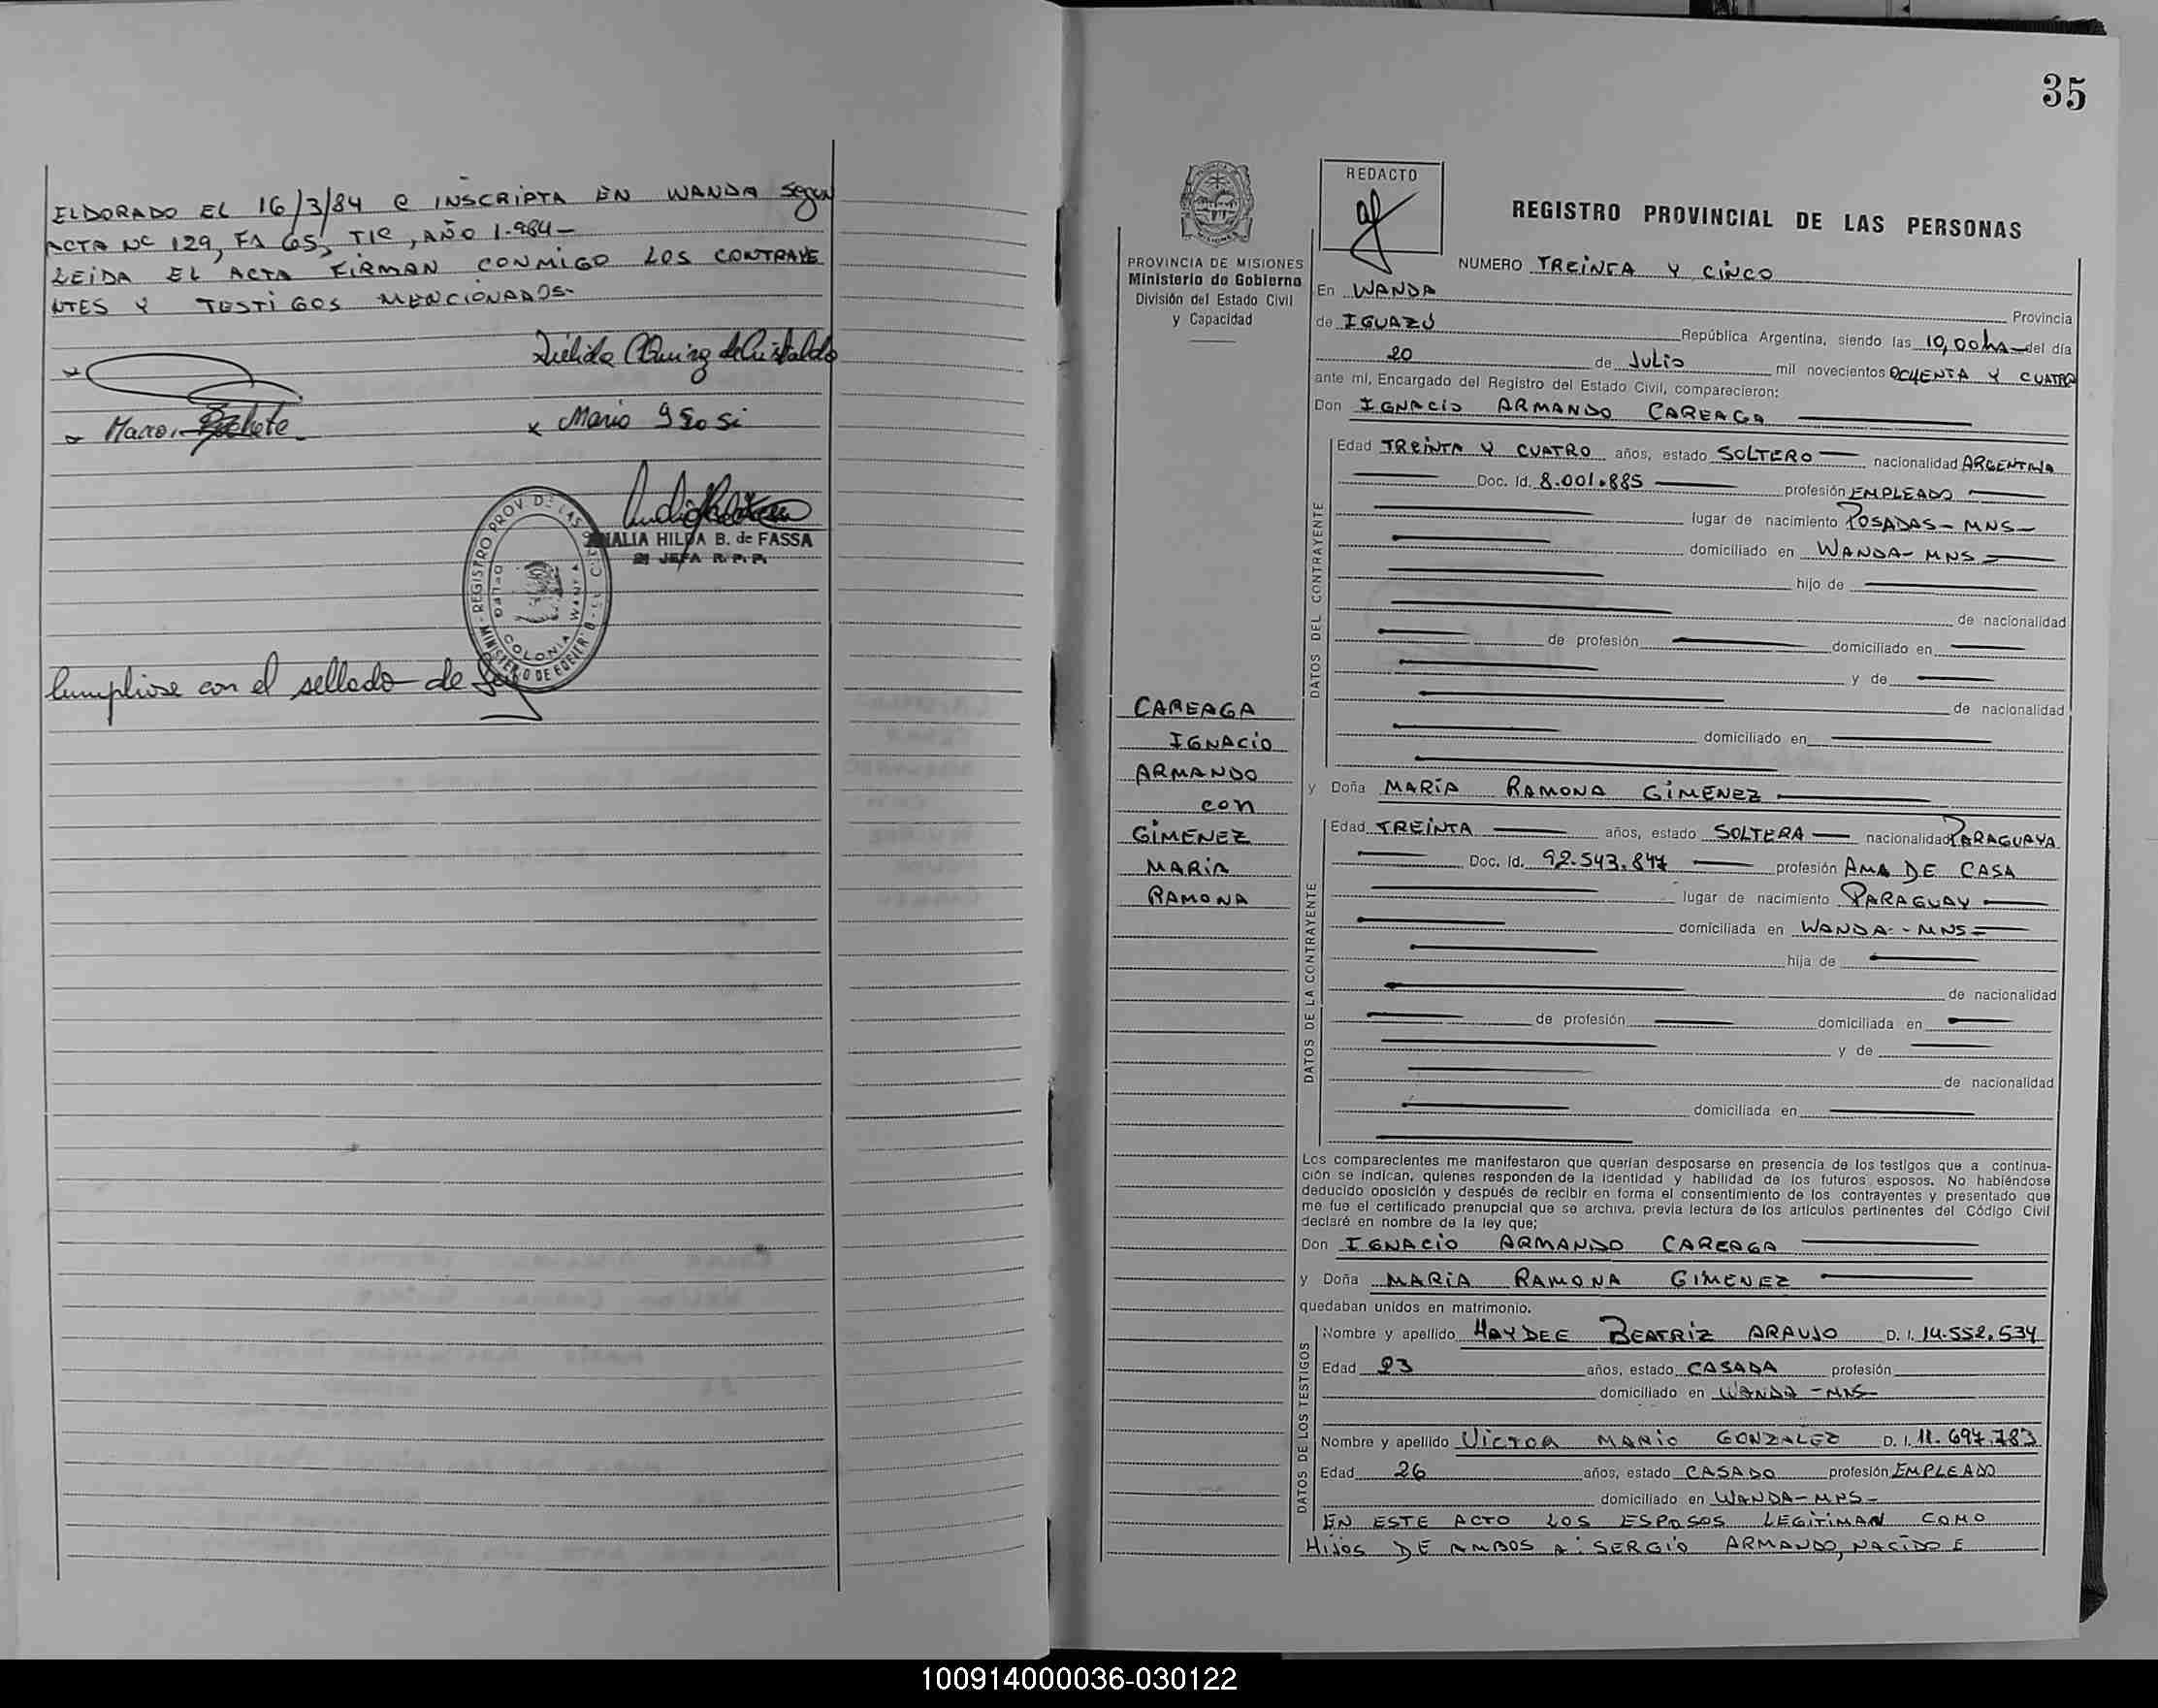 ELDORADO EL 16/3/84 e INSCRIPTA EN WANDA Segun
ACTA Nº 129, Fº 65, Tº, AÑO 1.984-
LEIDA EL ACTA FIRMAN CONMIGO LOS CONTRAYE
NTES Y TESTIGOS MENCIONADOS-
x Mario
AMALIA HILDA B. de FASSA
JEFA R.P.P.
REGISTRO PROV. DE LAS
COLONIA WANDA
MINISTERIO DE GOBIERNO
Cumplióse con el sellado de Ley
35
PROVINCIA DE MISIONES
Ministerio de Gobierno
División del Estado Civil
y Capacidad
REDACTO
REGISTRO PROVINCIAL DE LAS PERSONAS
NUMERO TREINTA Y CINCO
En WANDA Provincia
de IGUAZÚ República Argentina, siendo las 10,00hs del día
20 de Julio mil novecientos OCHENTA Y CUATRO
ante mí, Encargado del Registro del Estado Civil, comparecieron:
Don IGNACIO ARMANDO CAREAGA
DATOS DEL CONTRAYENTE
Edad TREINTA Y CUATRO años, estado SOLTERO nacionalidad ARGENTINA
Doc. Id. 8.001.885 profesión EMPLEADO
lugar de nacimiento POSADAS-MNS-
domiciliado en WANDA-MNS
hijo de
de nacionalidad
de profesión domiciliado en
y de
de nacionalidad
domiciliado en
CAREAGA
IGNACIO
ARMANDO
con
GIMENEZ
MARIA
RAMONA
y Doña MARÍA RAMONA GIMENEZ
DATOS DE LA CONTRAYENTE
Edad TREINTA años, estado SOLTERA nacionalidad PARAGUAYA
Doc. Id. 92.543.847 profesión AMA DE CASA
lugar de nacimiento PARAGUAY
domiciliada en WANDA-MNS
hija de
de nacionalidad
de profesión domiciliada en
y de
de nacionalidad
domiciliada en
Los comparecientes me manifestaron que querían desposarse en presencia de los testigos que a continua-
ción se indican, quienes responden de la identidad y habilidad de los futuros esposos. No habiéndose
deducido oposición y después de recibir en forma el consentimiento de los contrayentes y presentado que
me fue el certificado prenupcial que se archiva, previa lectura de los artículos pertinentes del Código Civil
declaré en nombre de la ley que;
Don IGNACIO ARMANDO CAREAGA
y Doña MARIA RAMONA GIMENEZ
quedaban unidos en matrimonio.
DATOS DE LOS TESTIGOS
Nombre y apellido HAYDEE BEATRIZ ARAUJO D. I. 14.552.534
Edad 23 años, estado CASADA profesión
domiciliado en WANDA-MNS-
Nombre y apellido VICTOR MARIO GONZALEZ D. I. 11.697.783
Edad 26 años, estado CASADO profesión EMPLEADO
domiciliado en WANDA-MNS-
EN ESTE ACTO LOS ESPOSOS LEGITIMAN COMO
HIJOS DE AMBOS A: SERGIO ARMANDO, NACIDO E
100914000036-030122